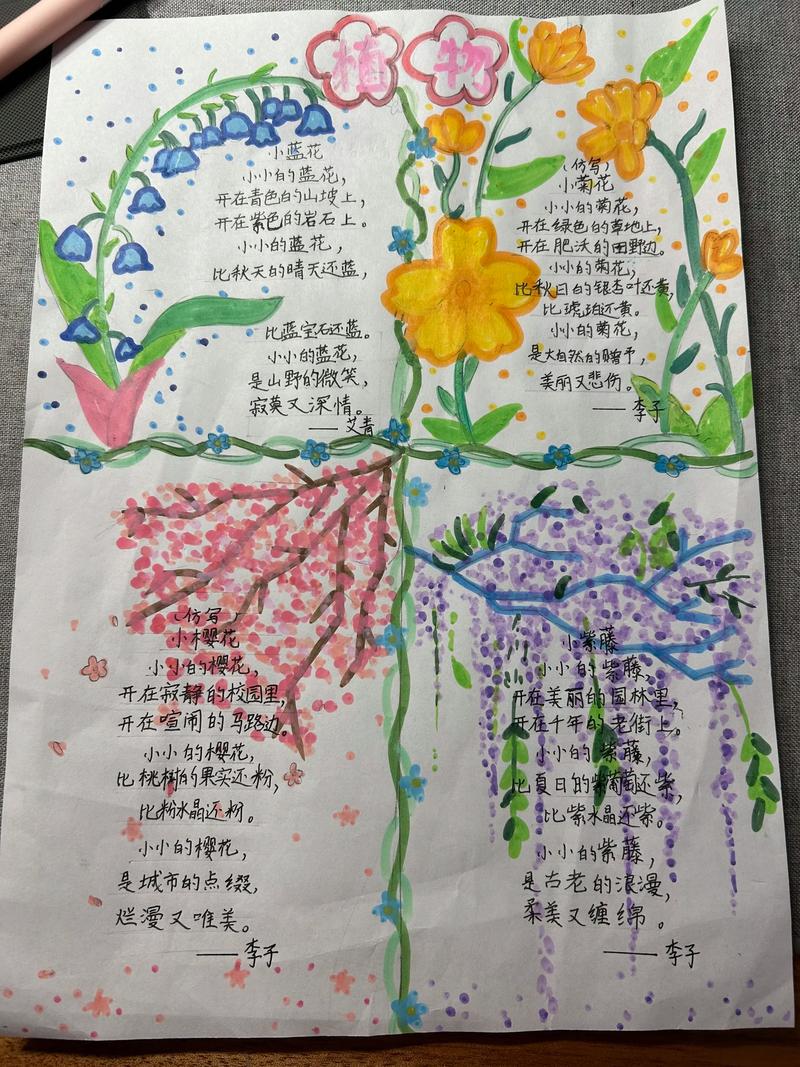 植物
小蓝花
小小的蓝花，
开在青色的山坡上，
开在紫色的岩石上。
小小的蓝花，
比秋天的晴天还蓝，
比蓝宝石还蓝。
小小的蓝花，
是山野的微笑，
寂寞又深情。
——艾青
（仿写）
小菊花
小小的菊花，
开在绿色的草地上，
开在肥沃的田野边。
小小的菊花，
比秋日的银杏叶还黄，
比琥珀还黄。
小小的菊花，
是大自然的赠予，
美丽又悲伤。
——李子
（仿写）
小樱花
小小的樱花，
开在寂静的校园里，
开在喧闹的马路边。
小小的樱花，
比桃树的果实还粉，
比粉水晶还粉。
小小的樱花，
是城市的点缀，
烂漫又唯美。
——李子
小紫藤
小小的紫藤，
开在美丽的园林里，
开在千年的老街上。
小小的紫藤，
比夏日的紫葡萄还紫，
比紫水晶还紫。
小小的紫藤，
是古老的浪漫，
柔美又缠绵。
——李子